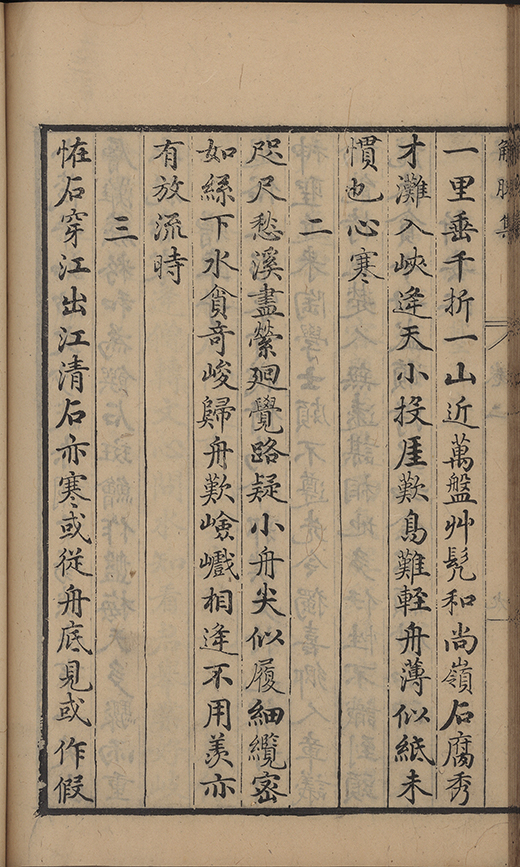 解脫集
一里垂千折一山近萬盤艸髡和尚嶺石腐秀
才灘入峽逢天小投厓歎鳥難輕舟薄似紙未
慣也心寒
二
咫尺愁溪盡縈廻覺路疑小舟尖似履細纜密
如絲下水貪奇峻歸舟歎嶮巇相逢不用羨亦
有放流時
三
恠石穿江出江清石亦寒或從舟底見或作假